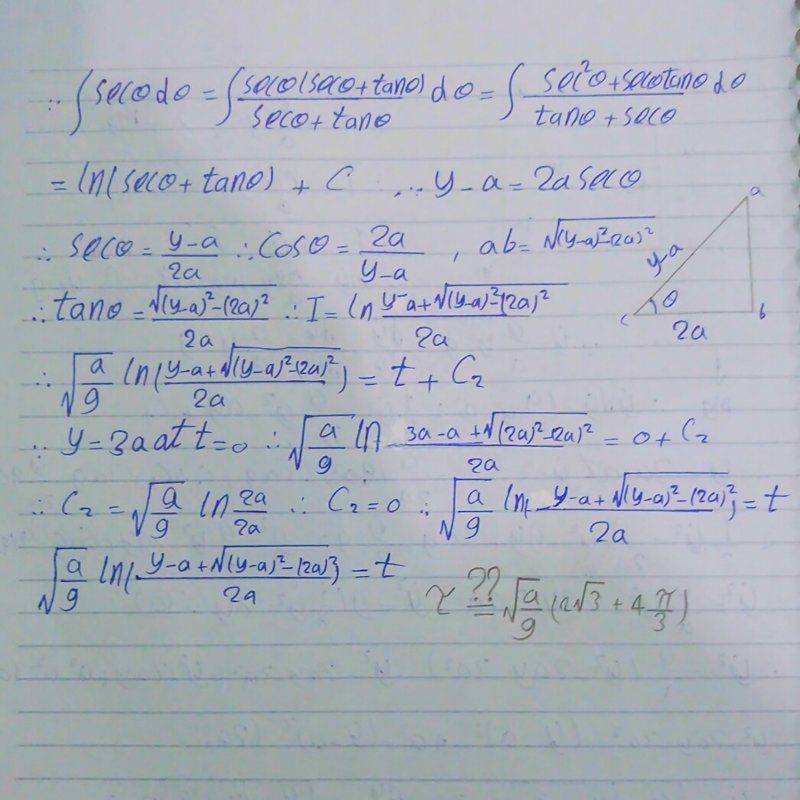 ∵ ∫ secθ dθ = ∫ secθ(secθ + tanθ) / secθ + tanθ dθ = ∫ sec²θ + secθtanθ dθ / tanθ + secθ
= ln(secθ + tanθ) + C ∴ y - a = 2a secθ
∴ secθ = y-a / 2a ∴ cosθ = 2a / y-a , ab = √(y-a)²-(2a)²
∴ tanθ = √(y-a)²-(2a)² / 2a ∴ I = ln y-a+√(y-a)²-(2a)² / 2a
a
y-a
θ
c
b
2a
∴ √a/g ln(y-a+√(y-a)²-(2a)² / 2a) = t + C₂
∵ y = 3a at t=0 ∴ √a/g ln 3a-a+√(2a)²-(2a)² / 2a = 0 + C₂
∴ C₂ = √a/g ln 2a/2a ∴ C₂=0 ∴ √a/g ln( y-a+√(y-a)²-(2a)² / 2a) = t
√a/g ln( y-a+√(y-a)²-(2a)² / 2a) = t
τ ??= √a/g (2√3 + 4 π/3)